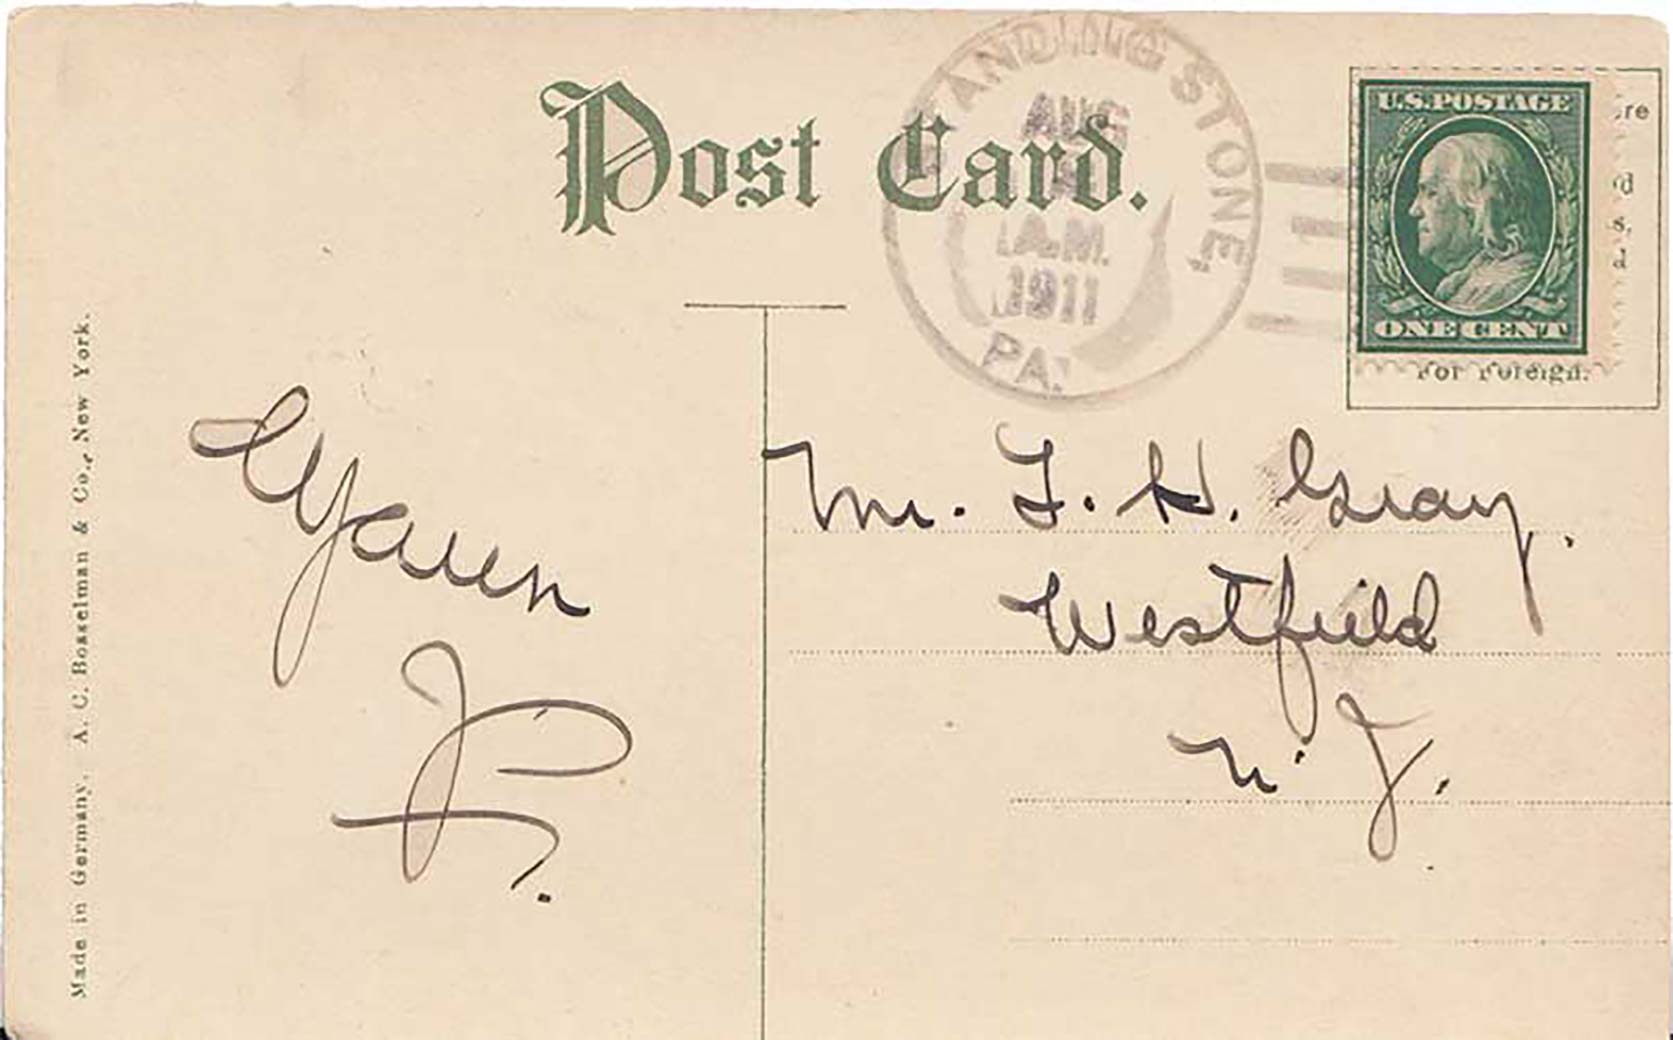 Post Card.
STANDING STONE,
AUG
A.M.
1911
PA.
U.S. POSTAGE
ONE CENT
For Foreign.
Made in Germany. A. C. Bosselman & Co., New York.
Mr. F. H. Gray.
Westfield
N. J.